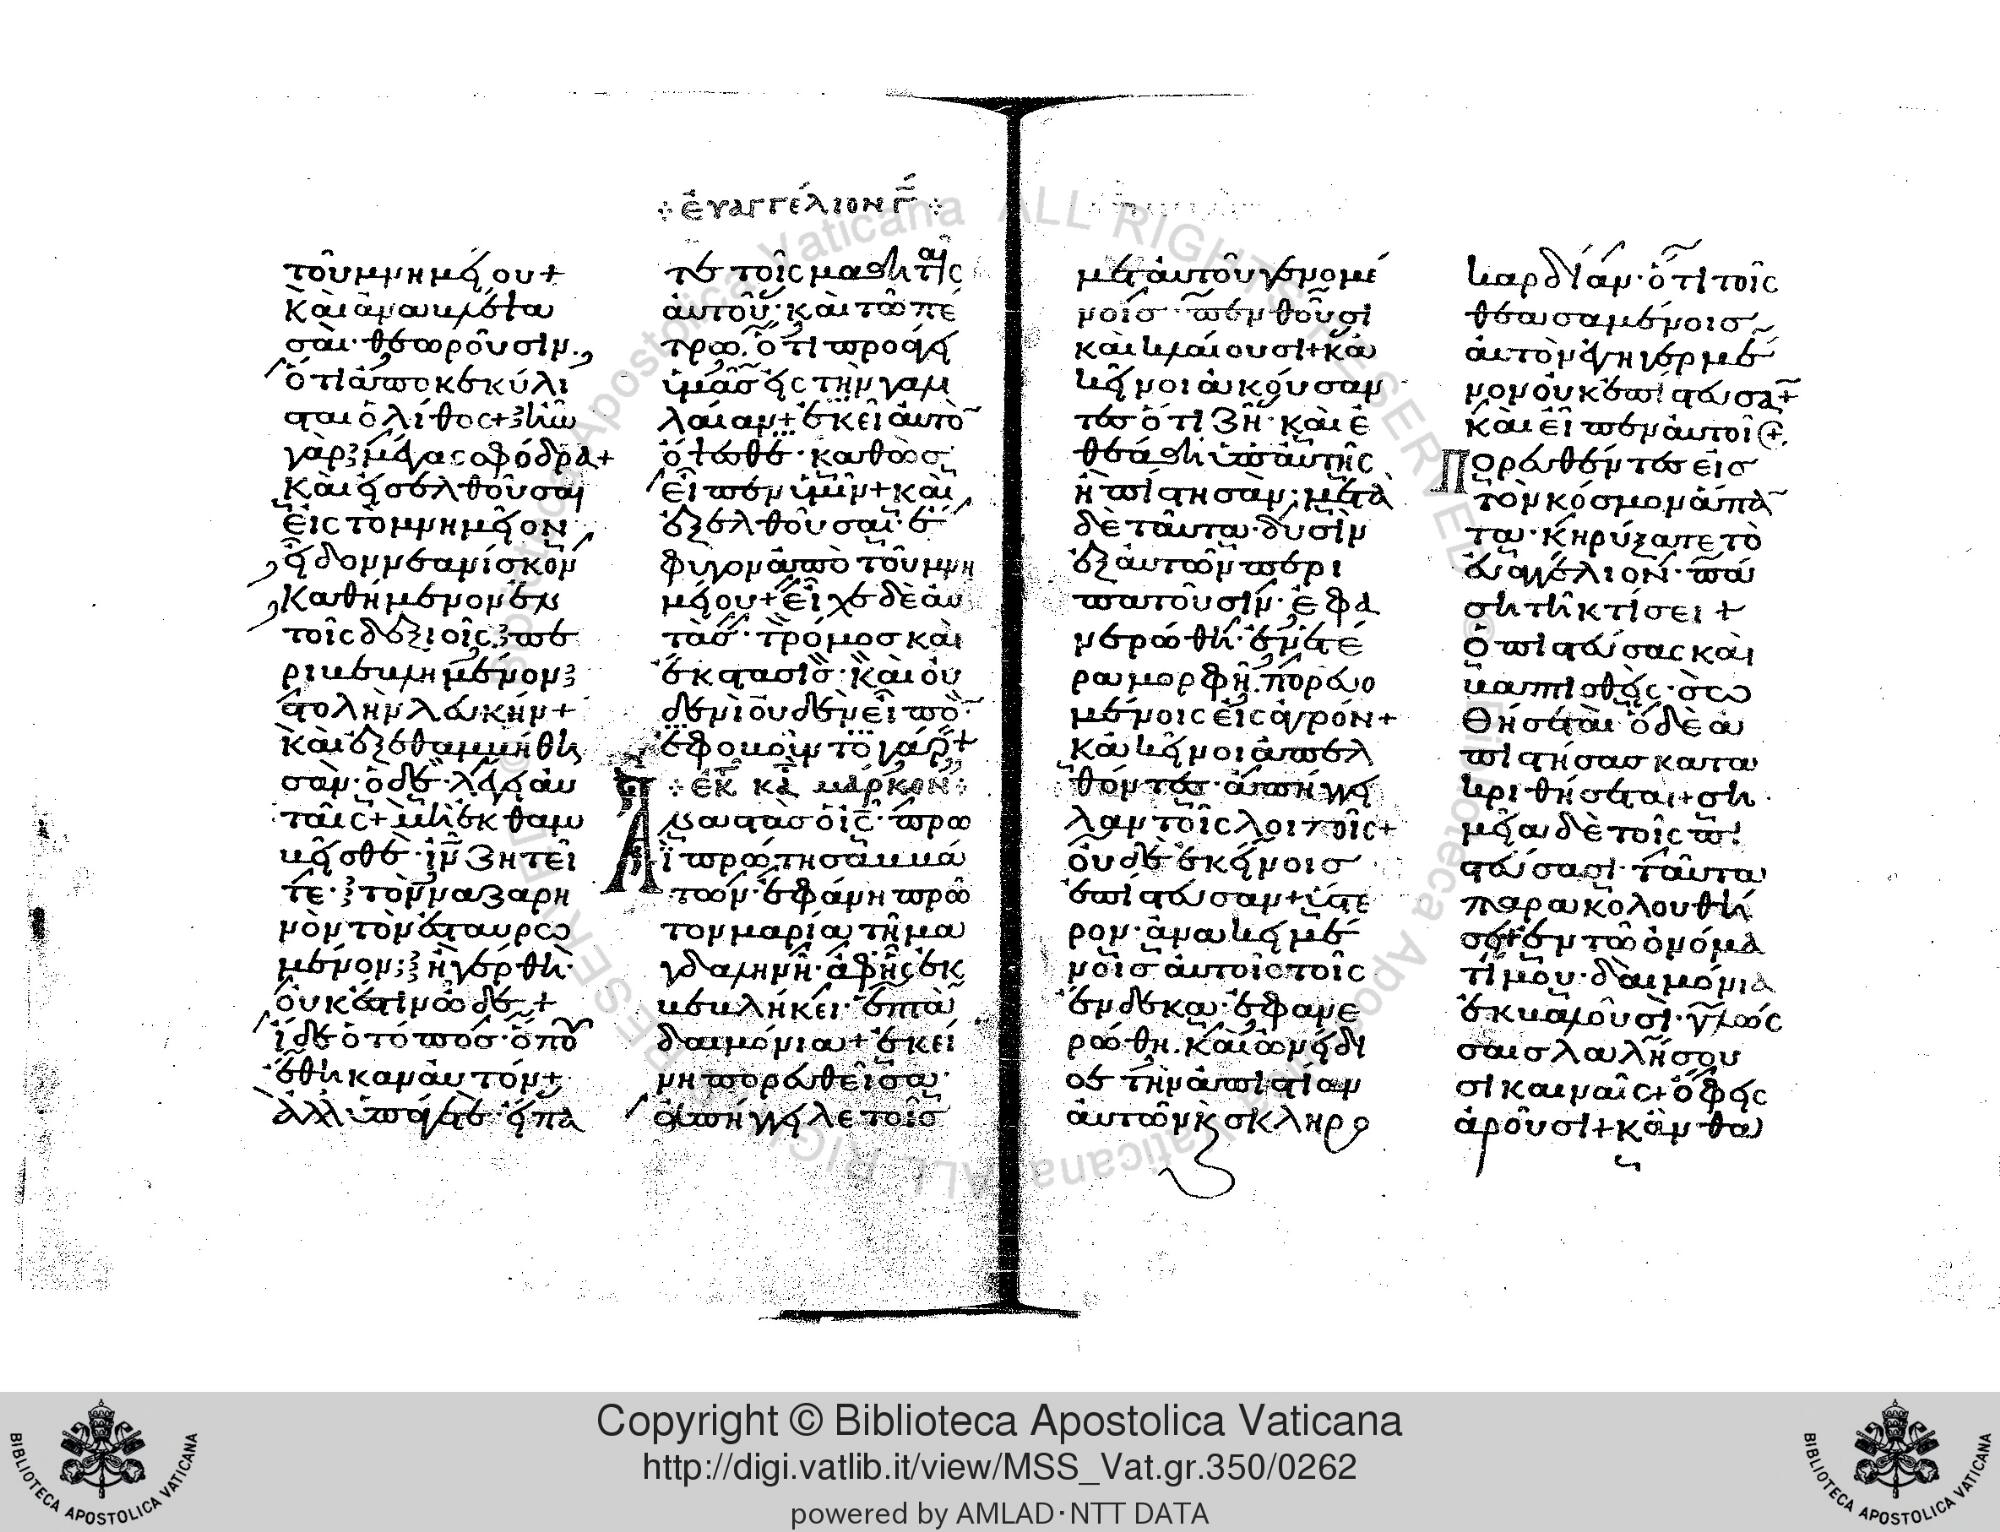 τοῦ μνημείου+
Καὶ ἀναβλέψα
σαι· θεωροῦσιν.
ὅτι ἀποκεκύλι
σται ὁ λίθος+ ἦν
γὰρ μέγας σφόδρα+
Καὶ εἰσελθοῦσαι
εἰς τὸ μνημεῖον
εἶδον νεανίσκον
Καθήμενον ἐν
τοῖς δεξιοῖς· πε
ριβεβλημένον
στολὴν λευκήν+
Καὶ ἐξεθαμβήθη
σαν· ὁ δὲ λέγει αὐ
ταῖς+ μὴ ἐκθαμ
βεῖσθε· ἰν ζητεῖ
τε· τὸν ναζαρη
νὸν τὸν ἐσταυρω
μένον; ἠγέρθη·
οὐκ ἔστιν ὧδε+
ἴδε ὁ τόπος· ὅπου
ἔθηκαν αὐτόν+
Ἀλλ' ὑπάγετε· εἴπα
ευαγγέλιον γ
τε τοῖς μαθηταῖς
αὐτοῦ· καὶ τῶ πέ
τρω. ὅτι προάγει
ὑμᾶς εἰς τὴν γαλι
λαίαν+ ἐκεῖ αὐτὸν
ὄψεσθε· καθὼς
εἶπεν ὑμῖν+ καὶ
ἐξελθοῦσαι· ἔ
φυγον ἀπὸ τοῦ μνη
μείου+ εἶχε δὲ αὐ
τὰς· τρόμος καὶ
ἔκστασις· καὶ οὐ
δενὶ οὐδὲν εἶπον·
ἐφοβοῦντο γάρ+
ἐκ κα μάρκον
Ἀναστὰς ὁ ις· πρω
ῒ πρώτη σαββά
των· ἐφάνη πρῶ
τον μαρία τῆ μα
γδαληνῆ· ἀφ' ἧς ἐκ
βεβλήκει· ἑπτὰ
δαιμόνια+ ἐκεί
νη πορευθεῖσα·
ἀπήγγειλε τοῖς
μετ' αὐτοῦ γενομέ
νοις πενθοῦσι
καὶ κλαίουσι+ κἀ
κεῖνοι ἀκούσαν
τες ὅτι ζῆ· καὶ ἐ
θεάθη ὑπ' αὐτῆς
ἠπίστησαν; μετὰ
δὲ ταῦτα· δυσὶν
ἐξ αὐτῶν περι
πατοῦσιν· ἐφα
νερώθη· ἐν ἑτέ
ρα μορφῆ. πορευο
μένοις εἰς ἀγρόν+
Κἀκεῖνοι ἀπελ
θόντες· ἀπήγγει
λαν τοῖς λοιποῖς+
οὐδὲ ἐκείνοις
ἐπίστευσαν+ ὕστε
ρον· ἀνακειμέ
νοις αὐτοῖς τοῖς
ἕνδεκα· ἐφανε
ρώθη. καὶ ὠνείδι
σε τὴν ἀπιστίαν
αὐτῶν κ σκληρο
καρδίαν· ὅτι τοῖς
θεασαμένοις
αὐτὸν ἐγηγερμέ
νον οὐκ ἐπίστευσαν+
Καὶ εἶπεν αὐτοῖς+
Πορευθέντες εἰς
τὸν κόσμον ἅπαν
τα· κηρύξατε τὸ
εὐαγγέλιον· πά
ση τῆ κτίσει+
Ὁ πιστεύσας καὶ
βαπτισθεὶς· σω
θήσεται· ὁ δὲ ἀ
πιστήσας κατα
κριθήσεται+ ση
μεῖα δὲ τοῖς πι
στεύσασι· ταῦτα
παρακολουθή
σει+ ἐν τῶ ὀνόμα
τί μου· δαιμόνια
ἐκβαλοῦσι· γλώσ
σαις λαλήσου
σι καιναῖς+ ὄφεις
ἀροῦσι+ κἂν θα
Copyright © Biblioteca Apostolica Vaticana
http://digi.vatlib.it/view/MSS_Vat.gr.350/0262
powered by AMLAD·NTT DATA
BIBLIOTECA APOSTOLICA VATICANA
BIBLIOTECA APOSTOLICA VATICANA